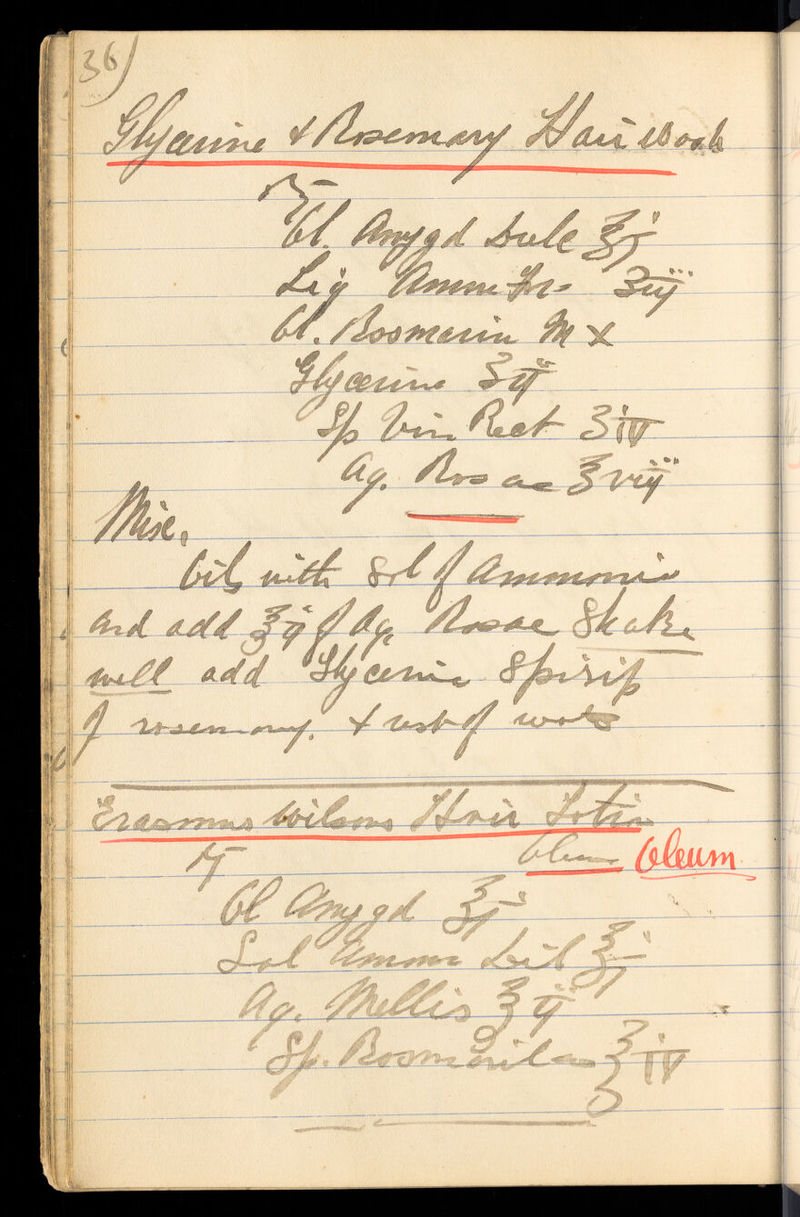 36)
Glycerine & Rosemary Hair Wash
℞
Ol. Amygd Dulc ℥j
Liq Ammo For ʒiij
Ol. Rosmarin ♏ x
Glycerine ʒij
Sp Vin Rect ʒiv
Aq. Rosae ℥viij
Misc.
Oils with Sol of Ammonia
and add ℥ij of Aq. Rosae Shake
well add Glycerine Spirit
of rosemary. & rest of
Erasmus Wilsons Hair Lotion
℞ Oleum Oleum
Ol Amygd ℥j
Sol Ammon Dil ℥j
Aq. Mellis ℥ij
Sp. ℥iv